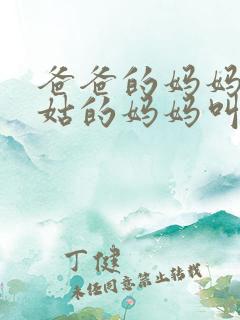 爸爸的妈妈
姑的妈妈叫
丁健
未经同意禁止转载